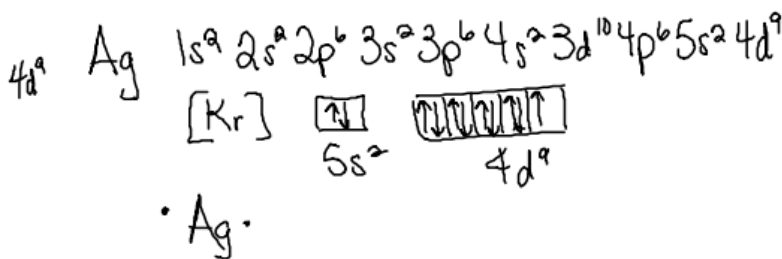 4d⁹ Ag 1s² 2s² 2p⁶ 3s² 3p⁶ 4s² 3d¹⁰ 4p⁶ 5s² 4d⁹
[Kr] ↑↓ ↑↓ ↑↓ ↑↓ ↑↓ ↑
5s² 4d⁹
· Ag ·